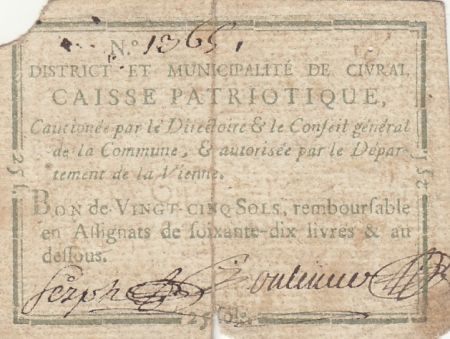 N.° 1365.
DISTRICT ET MUNICIPALITÉ DE CIVRAI,
CAISSE PATRIOTIQUE,
Cautionée par le Directoire & le Conſeil général
de la Commune, & autoriſée par le Dépar-
tement de la Vienne.
BON de VINGT-CINQ SOLS, rembourſable
en Aſſignats de ſoixante-dix livres & au
deſſous.
25 ſols.